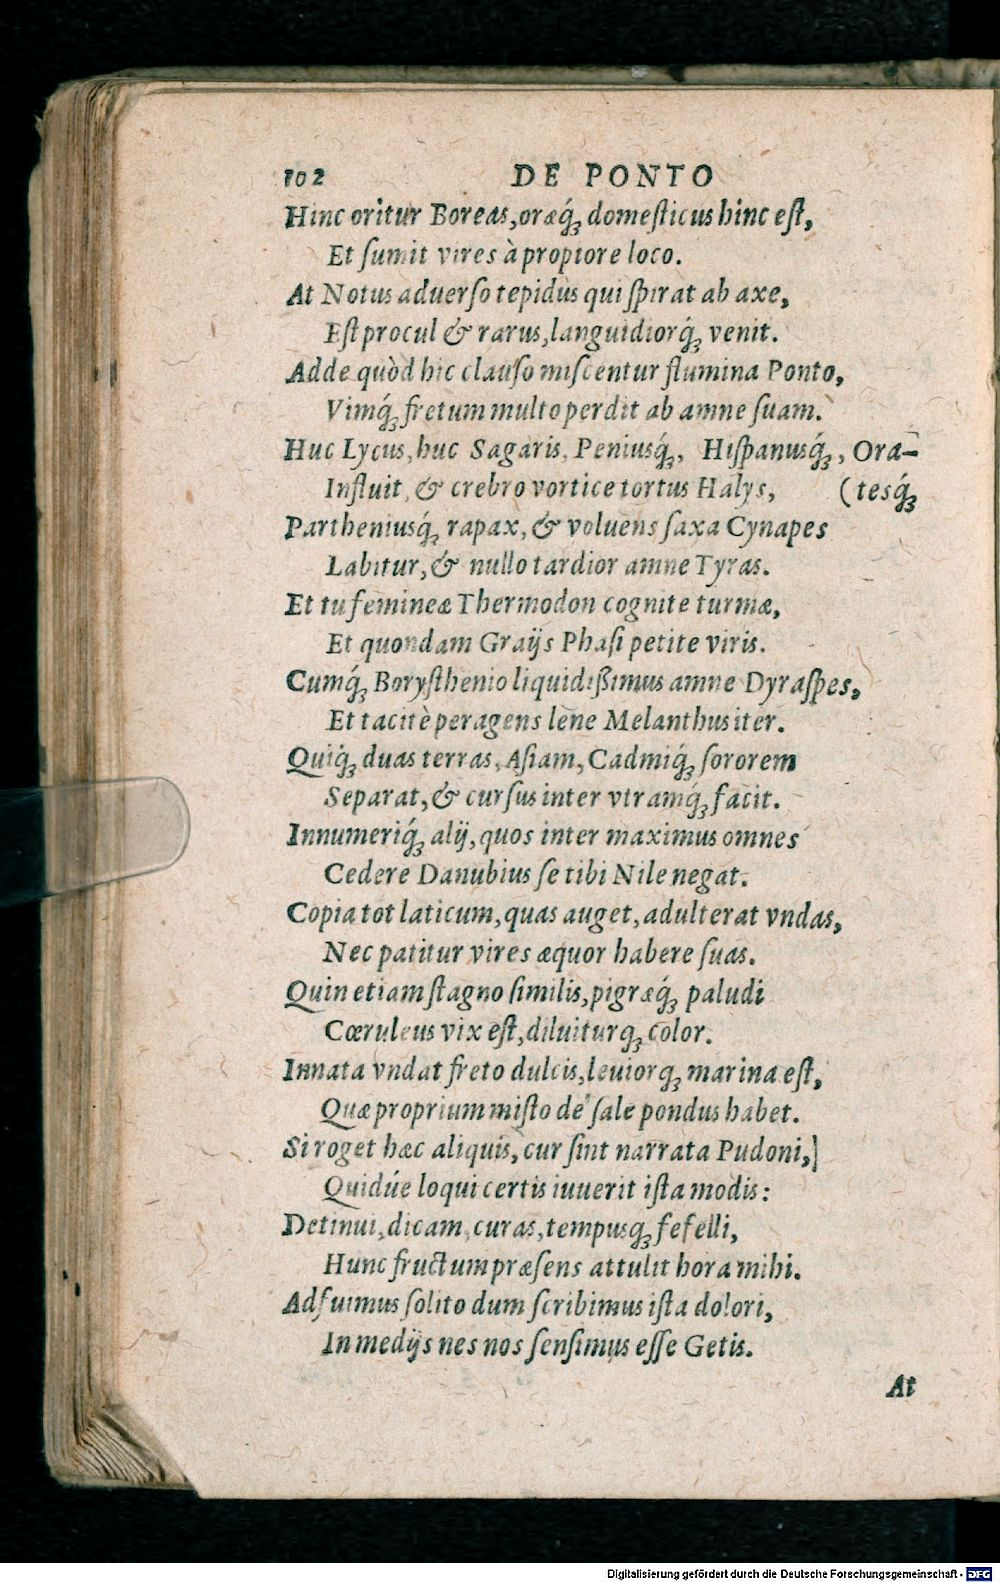 102 DE PONTO
Hinc oritur Boreas, oræq́ꝫ domeſticus hinc eſt,
Et ſumit vires à propiore loco.
At Notus aduerſo tepidus qui ſpirat ab axe,
Eſt procul & rarus, languidiorq́ꝫ venit.
Adde quòd hic clauſo miſcentur flumina Ponto,
Vimq́ꝫ fretum multo perdit ab amne ſuam.
Huc Lycus, huc Sagaris, Peniusq́ꝫ, Hiſpanusq́ꝫ, Ora-
Influit, & crebro vortice tortus Halys, (tesq́ꝫ
Partheniusq́ꝫ rapax, & voluens ſaxa Cynapes
Labitur, & nullo tardior amne Tyras.
Et tu femineæ Thermodon cognite turmæ,
Et quondam Graijs Phaſi petite viris.
Cumq́ꝫ Boryſthenio liquidißimus amne Dyraſpes,
Et tacitè peragens lene Melanthus iter.
Quiq́ꝫ duas terras, Aſiam, Cadmiq́ꝫ ſororem
Separat, & curſus inter vtramq́ꝫ facit.
Innumeriq́ꝫ alij, quos inter maximus omnes
Cedere Danubius ſe tibi Nile negat.
Copia tot laticum, quas auget, adulterat vndas,
Nec patitur vires æquor habere ſuas.
Quin etiam ſtagno ſimilis, pigræq́ꝫ paludi
Cœruleus vix eſt, diluiturqꝫ color.
Innata vndat freto dulcis, leuiorqꝫ marina eſt,
Quæ proprium miſto de ſale pondus habet.
Si roget hæc aliquis, cur ſint narrata Pudoni,
Quidúe loqui certis iuuerit iſta modis:
Detinui, dicam, curas, tempusqꝫ fefelli,
Hunc fructum præſens attulit hora mihi.
Adfuimus ſolito dum ſcribimus iſta dolori,
In medijs nes nos ſenſimus eſſe Getis.
At
Digitalisierung gefördert durch die Deutsche Forschungsgemeinschaft - DFG